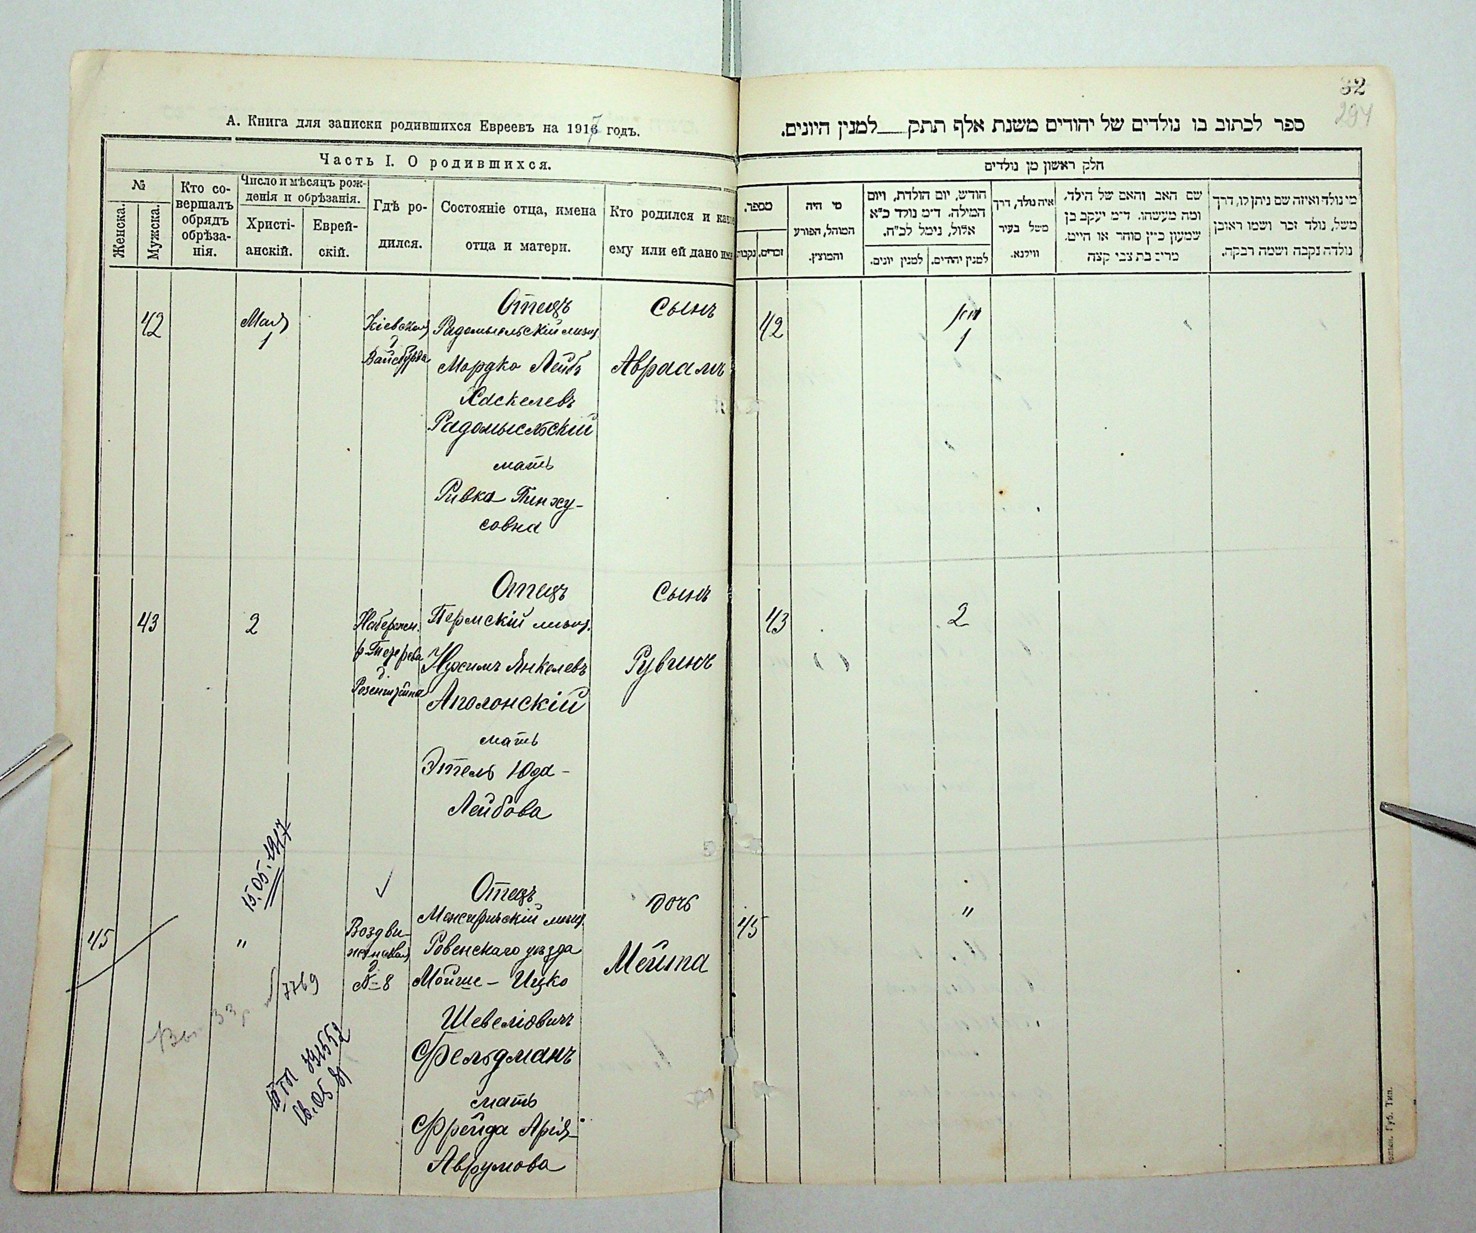 32
294
А. Книга для записки родившихся Евреевъ на 1917 годъ.
ספר לכתוב בו נולדים של יהודים משנת אלף תתק___למנין היונים.
Часть I. О родившихся.
חלק ראשון מן נולדים
№
Женска.
Мужска.
Кто со-
вершалъ
обрядъ
обрѣза-
нія.
Число и мѣсяцъ рож-
денія и обрѣзанія.
Христі-
анскій.
Еврей-
скій.
Гдѣ ро-
дился.
Состояніе отца, имена
отца и матери.
Кто родился и какое
ему или ей дано имя
מספר.
נקבות
זכרים.
מי היה
המוהל, הפורע
והמוצץ.
חודש, יום הולדת, ויום
המילה. ד״מ נולד כ״א
אלול, נימל לכ״ח.
למנין יונים.
למנין יהודים.
איה נולד, דרך
משל בעיר
ווילנא.
שם האב והאם של הילד,
ומה מעשהו. ד״מ יעקב בן
שמעון כ״ץ סוחר או חייט.
מרים בת צבי קצה
מי נולד ואיזה שם ניתן לו, דרך
משל, נולד זכר ושמו ראובן
נולדה נקבה ושמה רבקה.
42
Мая
1
Кіевская
д
Вайсбурда
Отецъ
Радомысльскій мѣщ
Мордко Лейбъ
Хаскелевъ
Радомысльскій
мать
Ривка Пинху-
совна
сынъ
Авраамъ
42
1
43
2
Набережн.
р. Тетерева
д
Розенштейна
Отецъ
Пермскій мѣщ.
Нухимъ Янкелевъ
Аполонскій
мать
Этель Юда-
Лейбова
сынъ
Рувинъ
43
2
15.05.1917
45
"
Воздви-
женская
д
№ 8
Отецъ
Межиричскій мѣщ.
Ровенскаго уѣзда
Мойше - Ицко
Шевеліовичъ
Фельдманъ
мать
Фрейда Арія-
Аврумова
дочь
Мейта
45
"
7769
Губ. Тип.